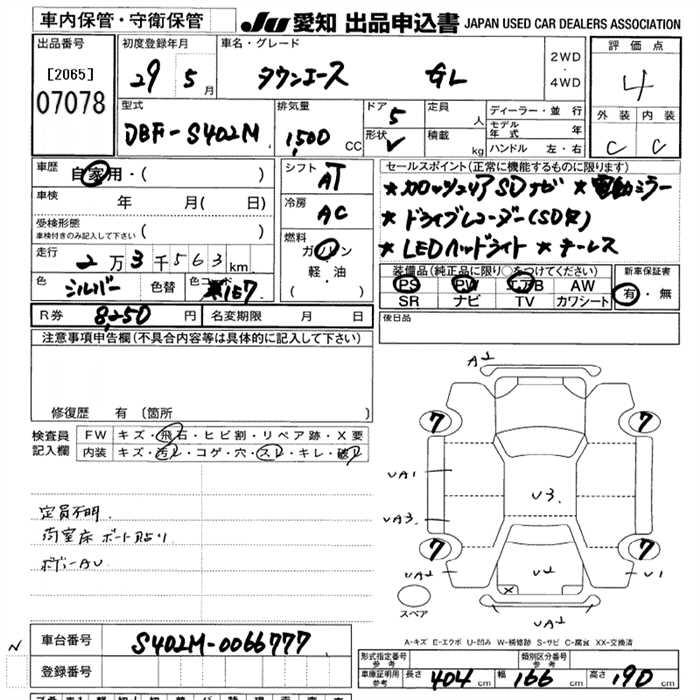 車内保管・守衛保管
JU 愛知 出品申込書 JAPAN USED CAR DEALERS ASSOCIATION
出品番号
[2065]
07078
初度登録年月
29年 5月
車名・グレード
タウンエース GL
2WD
・
4WD
評価点
4
外装 内装
C C
型式
DBF-S402M
排気量
1,500 CC
ドア
5
形状
V
定員 人
積載 kg
ディーラー・並行
モデル年式 年
ハンドル 左・右
車歴
自家用・( )
車検 年 月 ( 日)
受検形態
車検付きのみ記入して下さい ( )
走行
2万3千563km
色
シルバー
色替
色コード
157
シフト
AT
冷房
AC
燃料
ガソリン
軽・油
( )
セールスポイント(正常に機能するものに限ります)
★カロッツェリアSDナビ ★電動ミラー
★ドライブレコーダー(SD欠)
★LEDヘッドライト ★キーレス
装備品(純正品に限り○をつけてください)
PS PW エアB AW
SR ナビ TV カワシート
新車保証書
有・無
R券 8,250円
名変期限 月 日
後日品
注意事項申告欄(不具合内容等は具体的に記入して下さい)
修復歴 有(箇所 )
検査員
記入欄
FW キズ・飛石・ヒビ割・リペア跡・X要
内装 キズ・汚レ・コゲ・穴・スレ・キレ・破レ
定員不明
荷室床ボードスレ
ボデーAU
A2
7 7
UA1
U3.
UA3
7 7
UA2
U2
U1
X
UA2
スペア
A-キズ E-エクボ U-凹み W-補修跡 S-サビ C-腐食 XX-交換済
N
車台番号
S402M-0066777
登録番号
形式指定番号
参考
類別区分番号
参考
車庫証明用
参考
長さ 404 cm 幅 166 cm 高さ 190 cm